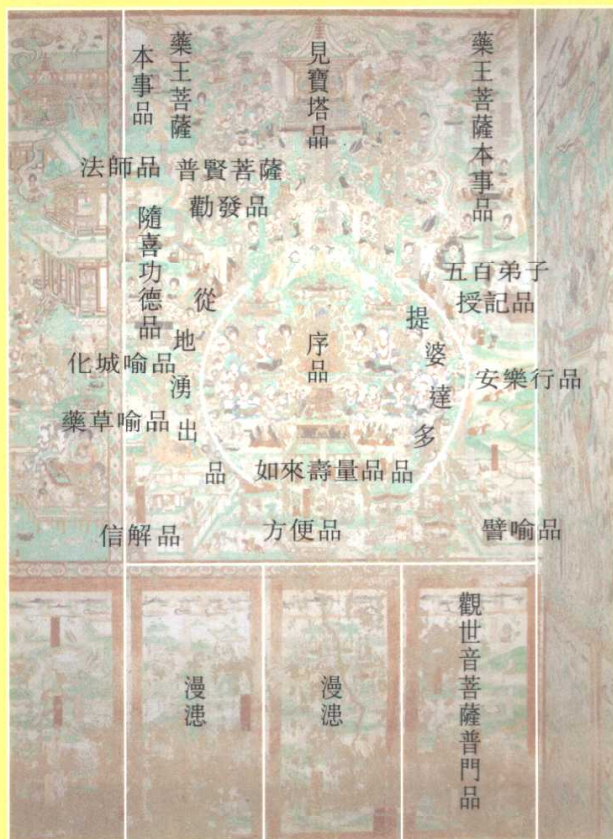 藥王菩薩本事品
見寶塔品
藥王菩薩
本事品
法師品
普賢菩薩
勸發品
隨喜功德品
五百弟子
授記品
從地湧出品
序品
提婆達多品
化城喻品
安樂行品
藥草喻品
如來壽量品
信解品
方便品
譬喻品
漫漶
漫漶
觀世音菩薩普門品